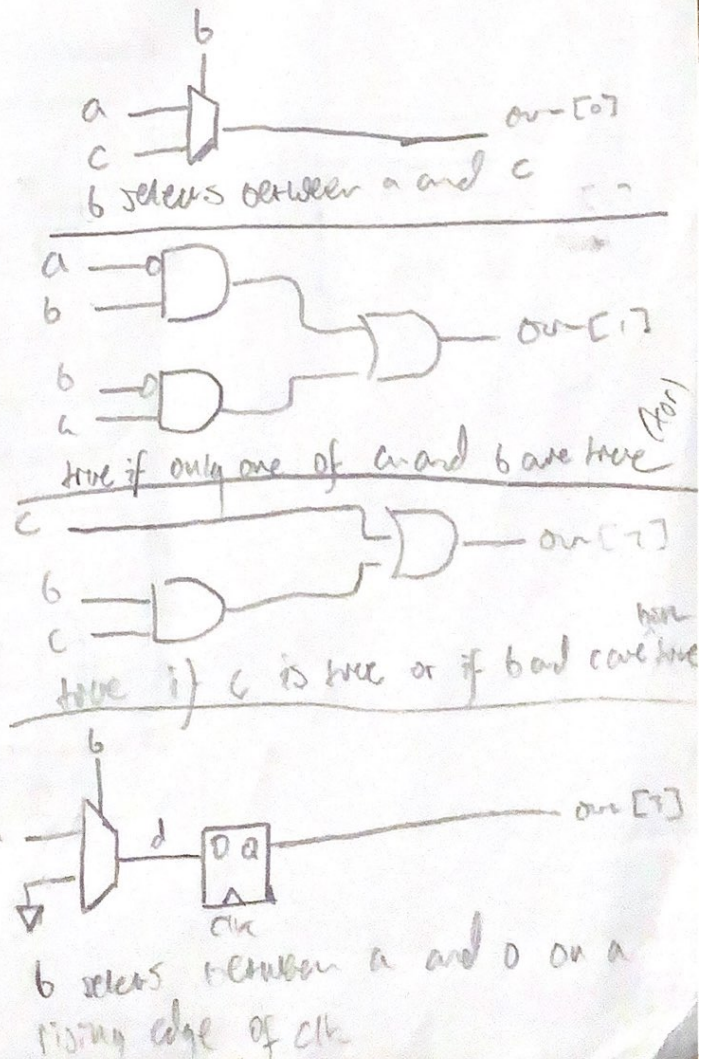 b
a
out[0]
c
b selects between a and c
a
b
out[1]
b
a
(xor)
true if only one of a and b are true
c
out[2]
b
c
both
true if c is true or if b and c are true
b
out[3]
d
D Q
clk
b selects between a and 0 on a
rising edge of clk